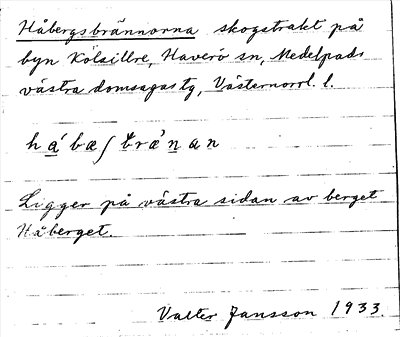 Håbergsbrännorna skogstrakt på
byn Kölsillre, Haverö sn, Medelpads
västra domsagas tg, Västernorrl. l.
håbæʃbrænan
Ligger på västra sidan av berget
Håberget.
Valter Jansson 1933.